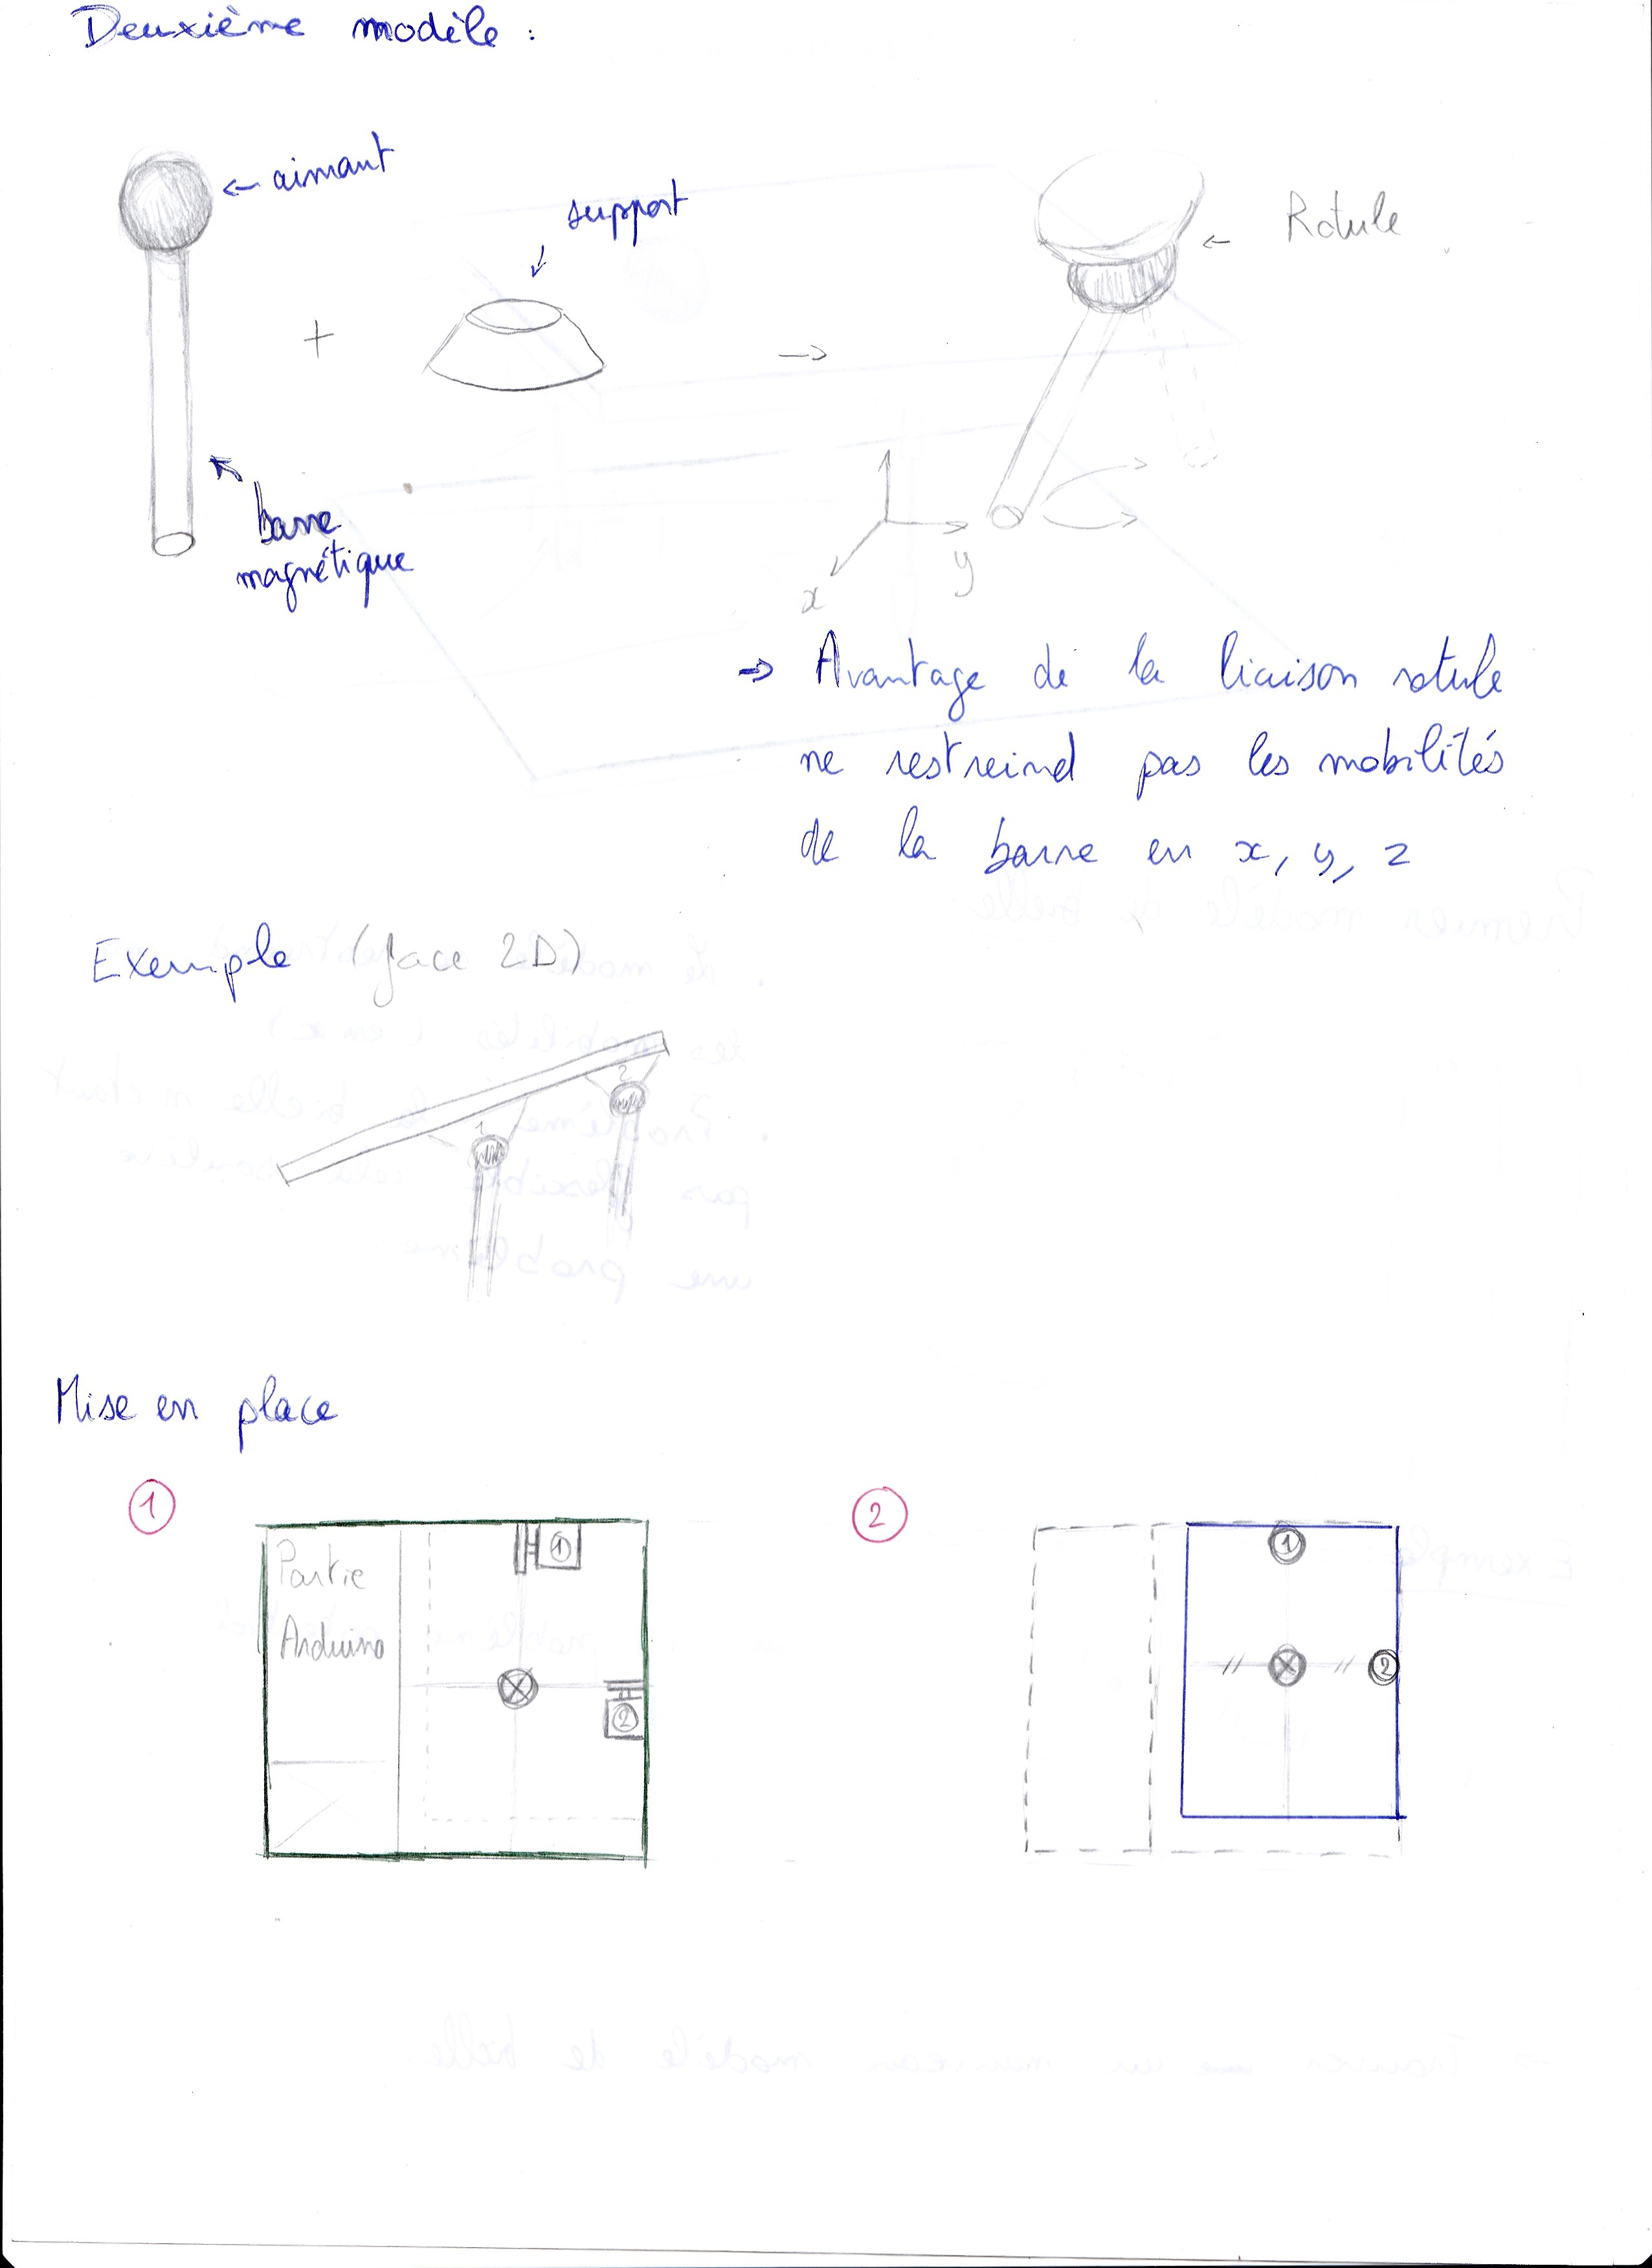 Deuxième modèle :
← aimant
support
← Rotule
+
→
barre
magnétique
x
y
→ Avantage de la liaison rotule
ne restreind pas les mobilités
de la barre en x, y, z
Exemple (face 2D)
1
2
Mise en place
1
2
Partie
Arduino
1
2
1
2